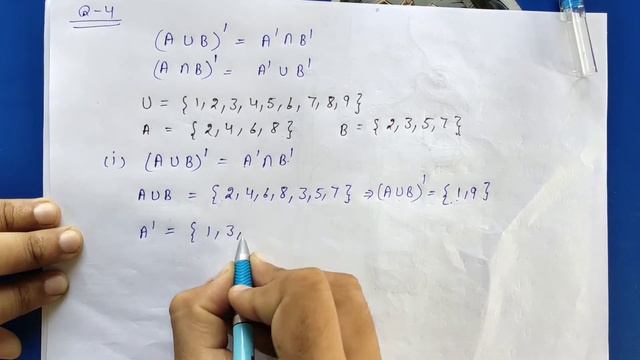 Q-4
(A ∪ B)' = A' ∩ B'
(A ∩ B)' = A' ∪ B'
U = {1,2,3,4,5,6,7,8,9}
A = {2,4,6,8} B = {2,3,5,7}
(i) (A∪B)' = A'∩B'
A∪B = {2,4,6,8,3,5,7} ⇒ (A∪B)' = {1,9}
A' = {1,3,